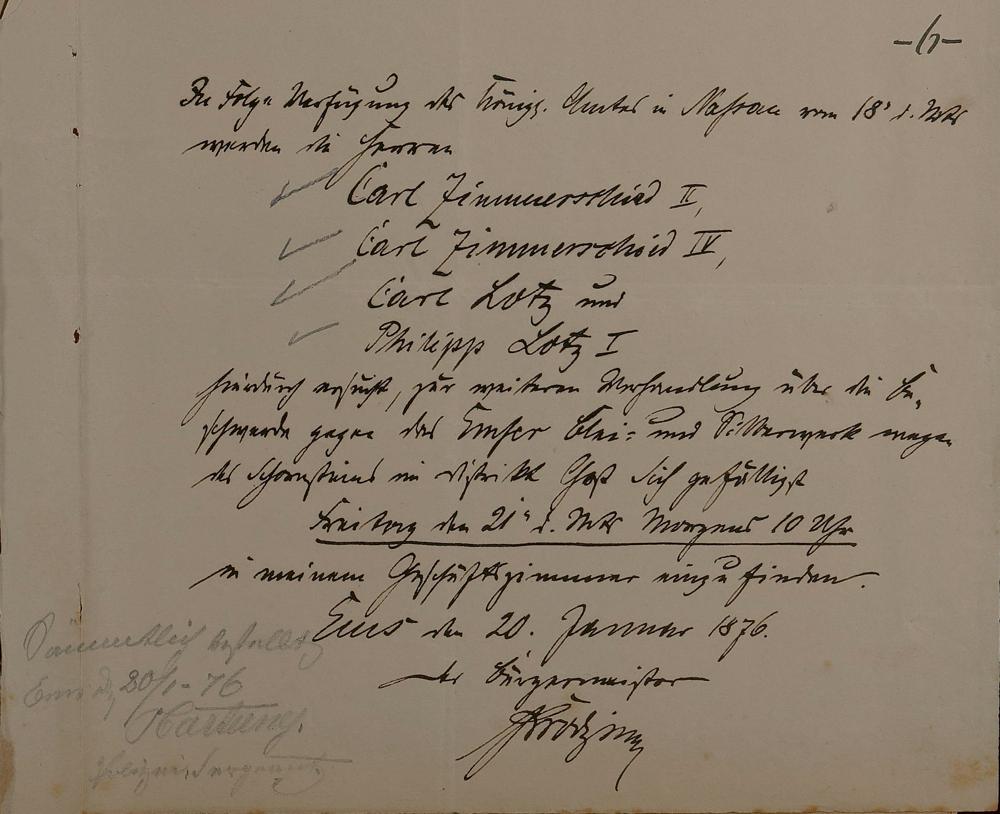 -6-
In Folge Verfügung des Königl. Amtes in Nassau vom 18t d. Mts
werden die Herren
Carl Zimmerschied II,
Carl Zimmerschied IV,
Carl Lotz und
Philipp Lotz I
hierdurch ersucht, zur weiteren Verhandlung über die Be-
schwerde gegen das Emser Blei- und Silberwerk wegen
des Schornsteins im Distrikt sich gefälligst
Freitag den 21t d. Mts Morgens 10 Uhr
in meinem Geschäftszimmer einzufinden.
Ems den 20. Januar 1876.
Der Bürgermeister
Sämmtlich bestellt
Ems d. 20/1-76
Hartung
Polizei Sergeant